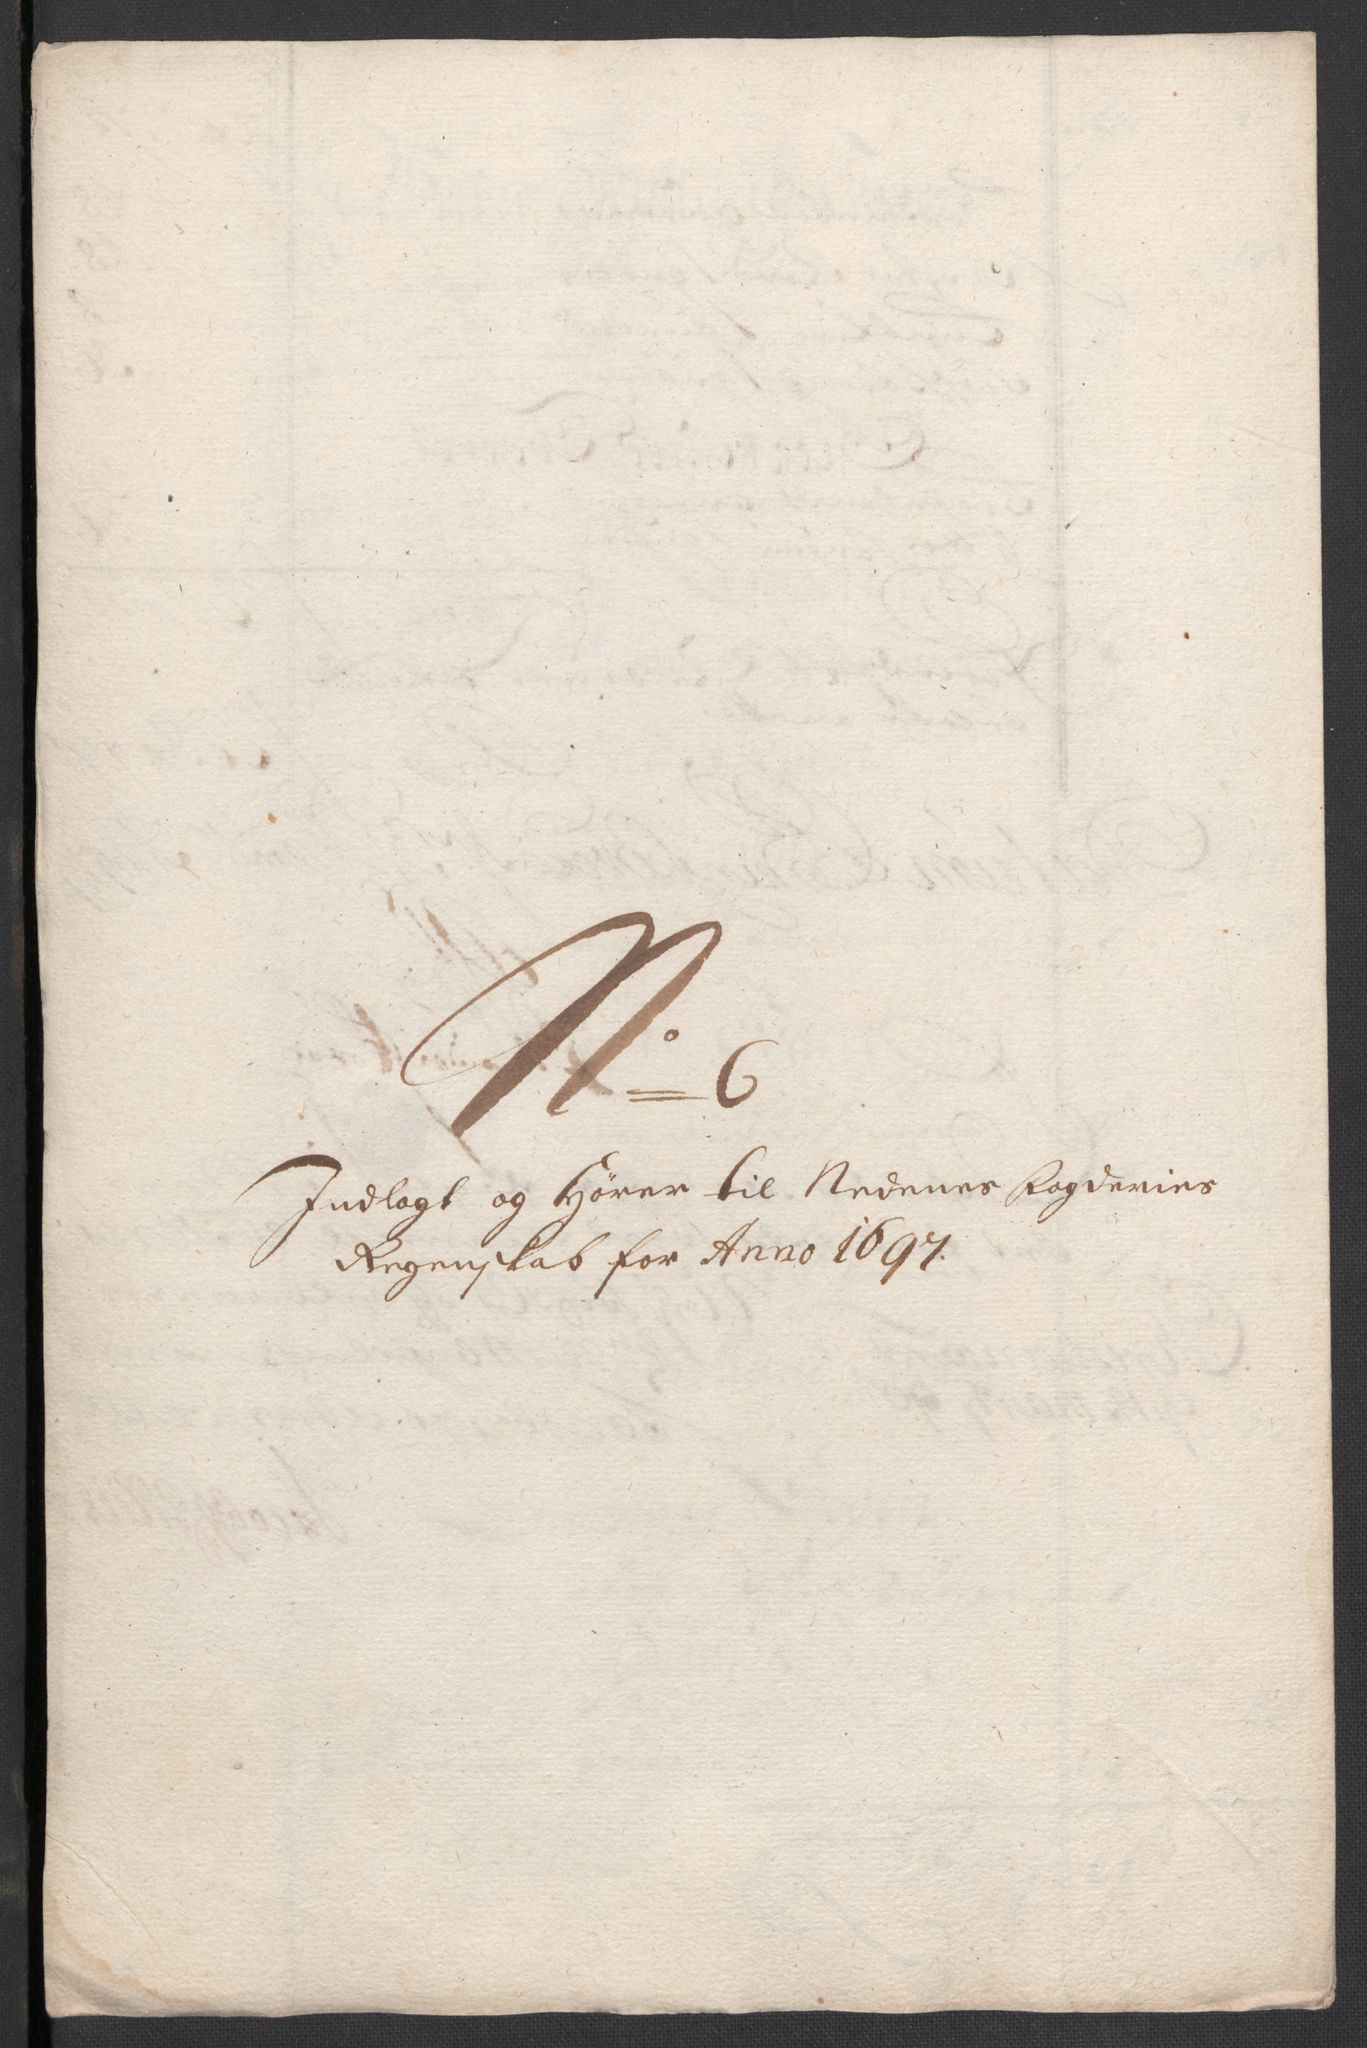 No 6
Indlagt og Hörer til Nedenes Fogderies
Regenskab for Anno 1697.